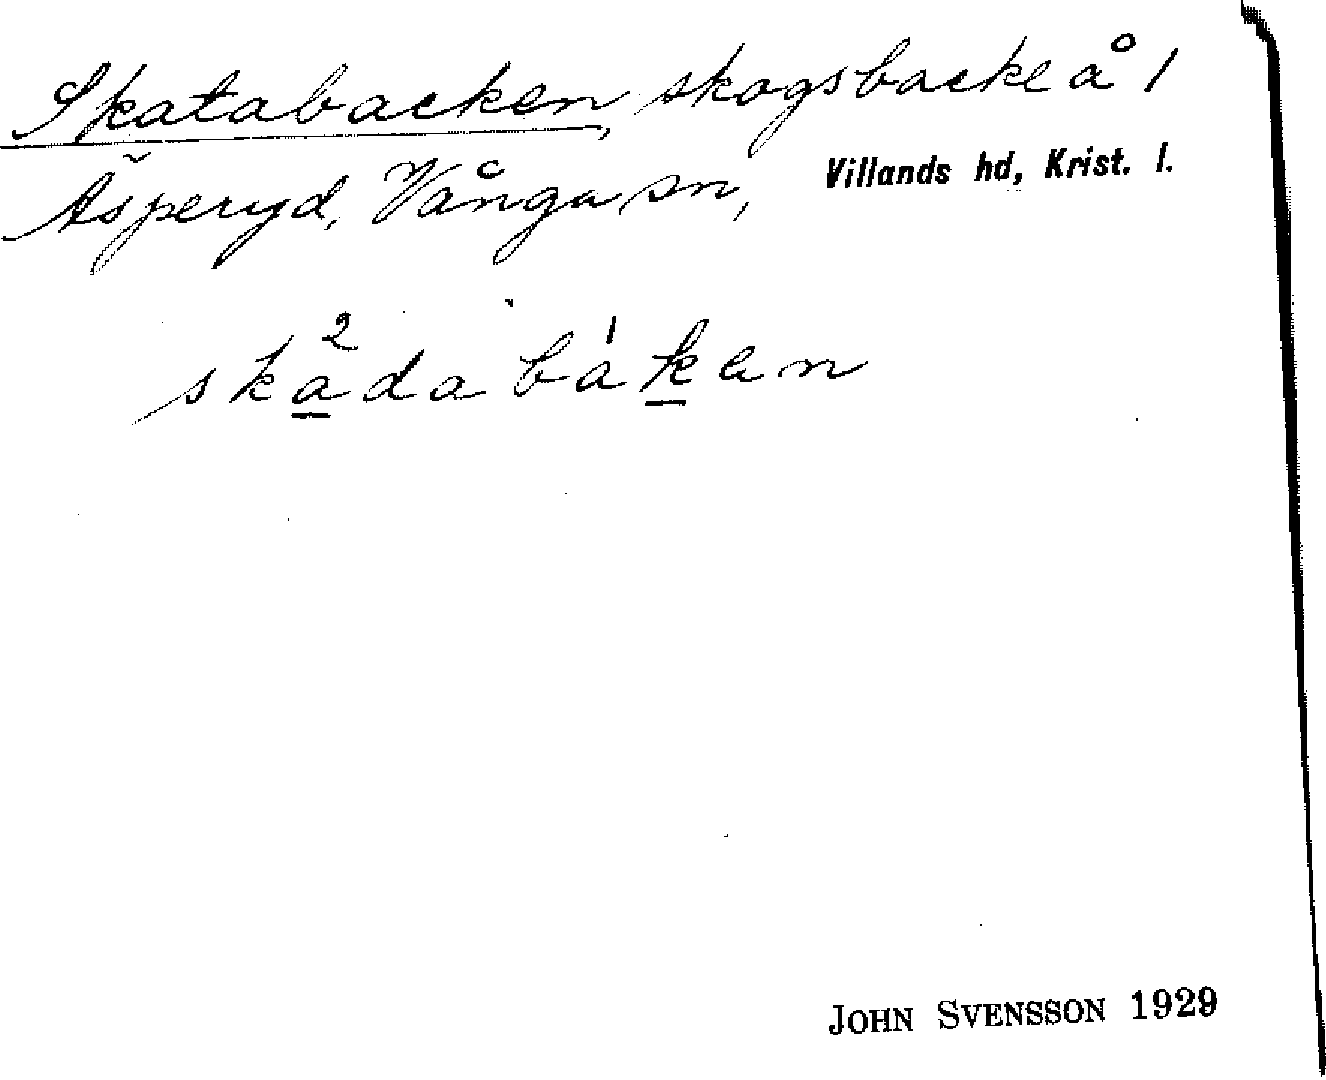 Skatabacken, skogsbacke å 1
Äsperyd, Vånga sn, Villands hd, Krist. l.
skа̱²daba̍ḵen
JOHN SVENSSON 1929